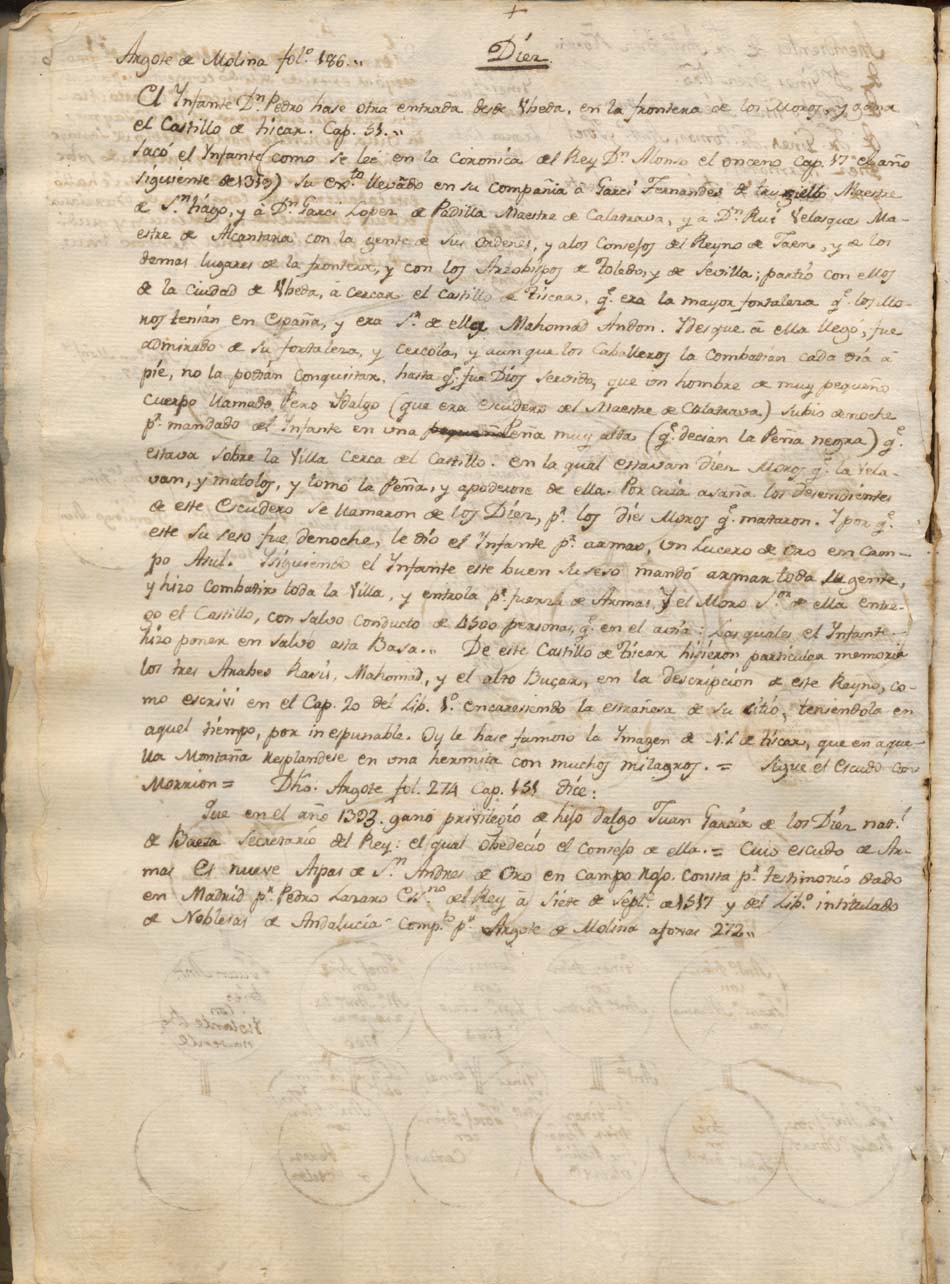 +
Diez
Argote de Molina folº 186.,,
El Infante Dⁿ Pedro hase otra entrada desde Vbeda, en la frontera de los Moros, y gana
el Castillo de ticar. Cap. 51.,,
Sacó el Infante (como se lee en la Coronica del Rey Dⁿ Alonso el onceno Cap. 17 el año
siguiente de 1319) Su exᵗᵒ llevādo en su compañia á Garcí Fernandes de truxiello Maestre
de Sⁿ tiago, y á Dⁿ Garci Lopez de Padilla Maestre de Calatrava, y á Dⁿ Rui Velasques Ma-
estre de Alcantara con la gente de sus ordenes, y alos Consejos del Reyno de Jaen, y de los
demas lugares de la frontera, y con los Arzobispos de toledo, y de Sevilla; partió con ellos
de la ciudad de Vbeda, á cercar el castillo de tiscar, q.ᵉ era la mayor fortalera q.ᵉ los Mo-
ros tenian en España, y era Sʳ de ella Mahomad Andon. Y desque á ella llegó, fue
admirado de su fortalera, y cercóla, y aunque los Caballeros la combatian cada dia á
pie, no la podian conquistar, hasta q.ᵉ fue Dios servido, que ūn hombre de muy pequeño
cuerpo llamado Pero Hidalgo (que era escudero del Maestre de Calatrava) subió denoche
pʳ mandado del Infante en una Peña muy alta (q.ᵉ decian la Peña negra) q.ᵉ
estava sobre la Villa cerca del Castillo. en la qual estavan diez Moros q.ᵉ la vela-
van, y matolos, y tomó la Peña, y apoderose de ella. Por cuia asaña los desendientes
de este Escudero se llamaron de los Díez, pʳ los dies Moros q.ᵉ mataron. Y por q.ᵉ
este suseso fue denoche, le dio el Infante pʳ armas, un Lucero de Oro en Cam-
po Asul. Ysiguiendo el Infante este buen suseso mandó armar toda su gente,
y hizo combatir toda la Villa, y entrola pʳ fuerza de Armas, y el Moro Sᵒʳ de ella entre-
gó el Castillo, con salvo conducto de 4500 personas, q.ᵉ en el avia: Los quales el Infante
hizo poner en salvo asta Basa.,, De este Castillo de ticar hisieron particular memoria
los tres Arabes Rasis, Mahomad, y el alto Buçar, en la descripcion de este Reyno, co-
mo escriví en el Cap. 20 del Lib. 1º encaresiendo la estrañesa de su sitio, teniendola en
aquel tiempo, por inespunable. Oy le hase famoso la Imagen de N. S. de ticar, que en aque-
lla Montaña resplandese en una hermita con muchos milagros. = Sigue el Escudo con
Morrion = Dhó. Argote fol. 274 Cap. 151 dice:
Que en el año 1393. ganó privilegio de hijo dalgo Juan Garcia de los Díez nat.ˡ
de Baeza Secretario del Rey: el qual obedeció el consejo de ella. = Cuio escudo de Ar-
mas Es nueve Aspas de Sⁿ Andres de Oro en campo Rojo. Consta pʳ testimonio dado
en Madrid pʳ Pedro Lazaro Esⁿᵒ del Rey á siete de Septᵉ de 1517 y del Libº intitulado
de Noblesas de Andalucía comptᵒ pʳ Argote de Molina afojas 272,,